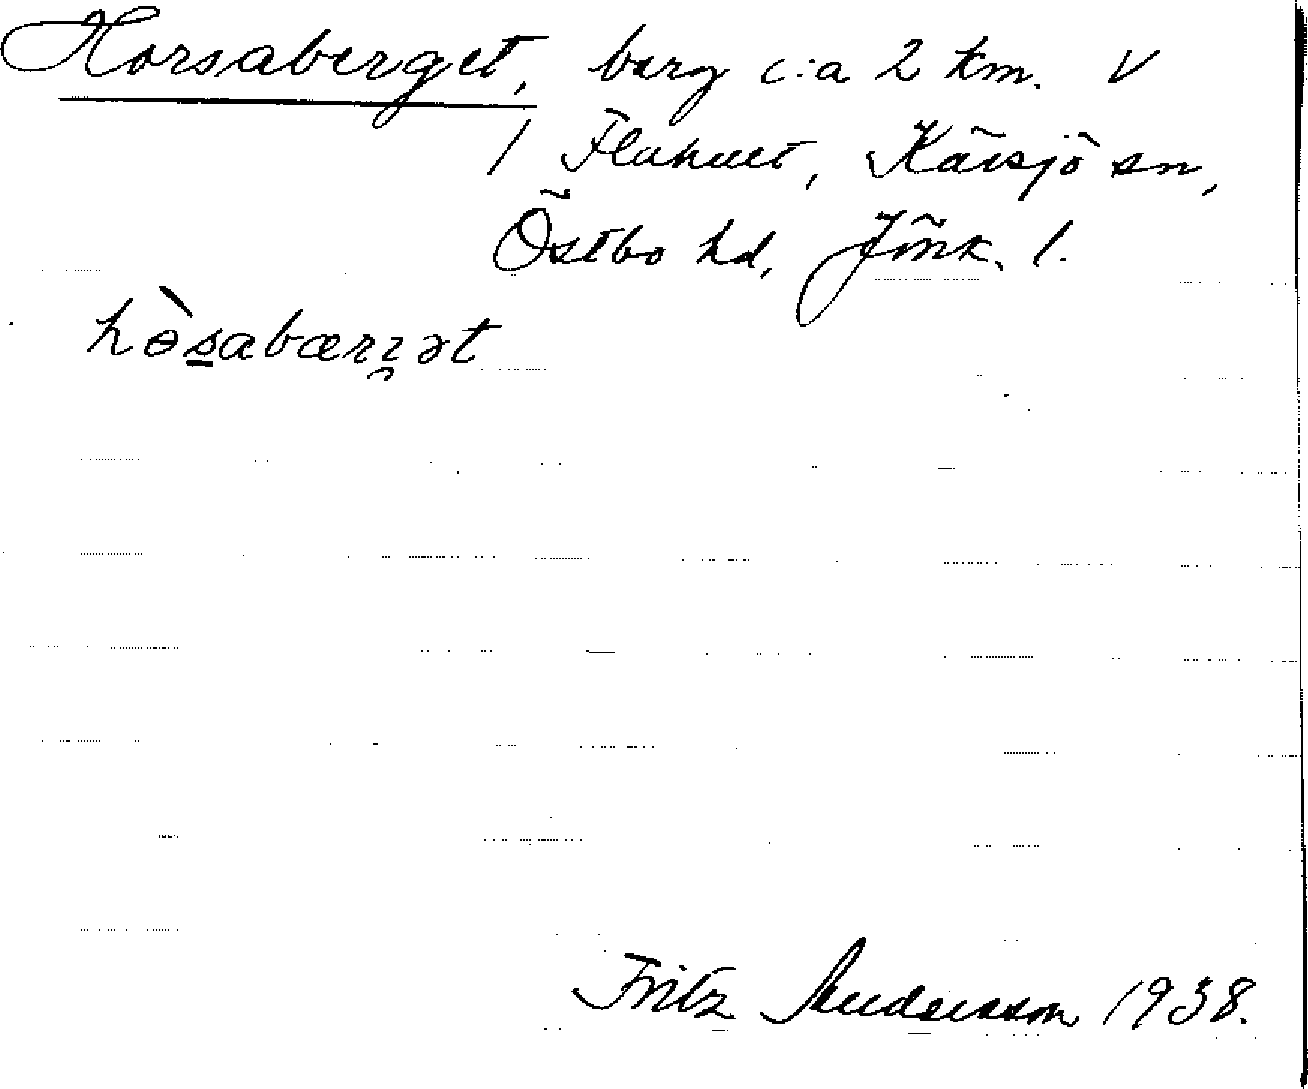 Horsaberget, berg c:a 2 km. V
/ Flahult, Kävsjö sn,
Östbo hd, Jönk. l.
hɵ̀s̠abærʒ̑ət
Fritz Andersson 1938.